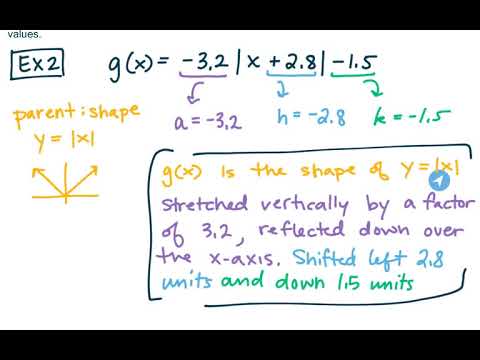 values.
Ex 2 g(x) = -3.2 |x + 2.8| - 1.5
a = -3.2 h = -2.8 k = -1.5
parent : shape
y = |x|
g(x) is the shape of y = |x|
stretched vertically by a factor
of 3.2, reflected down over
the x-axis. Shifted left 2.8
units and down 1.5 units